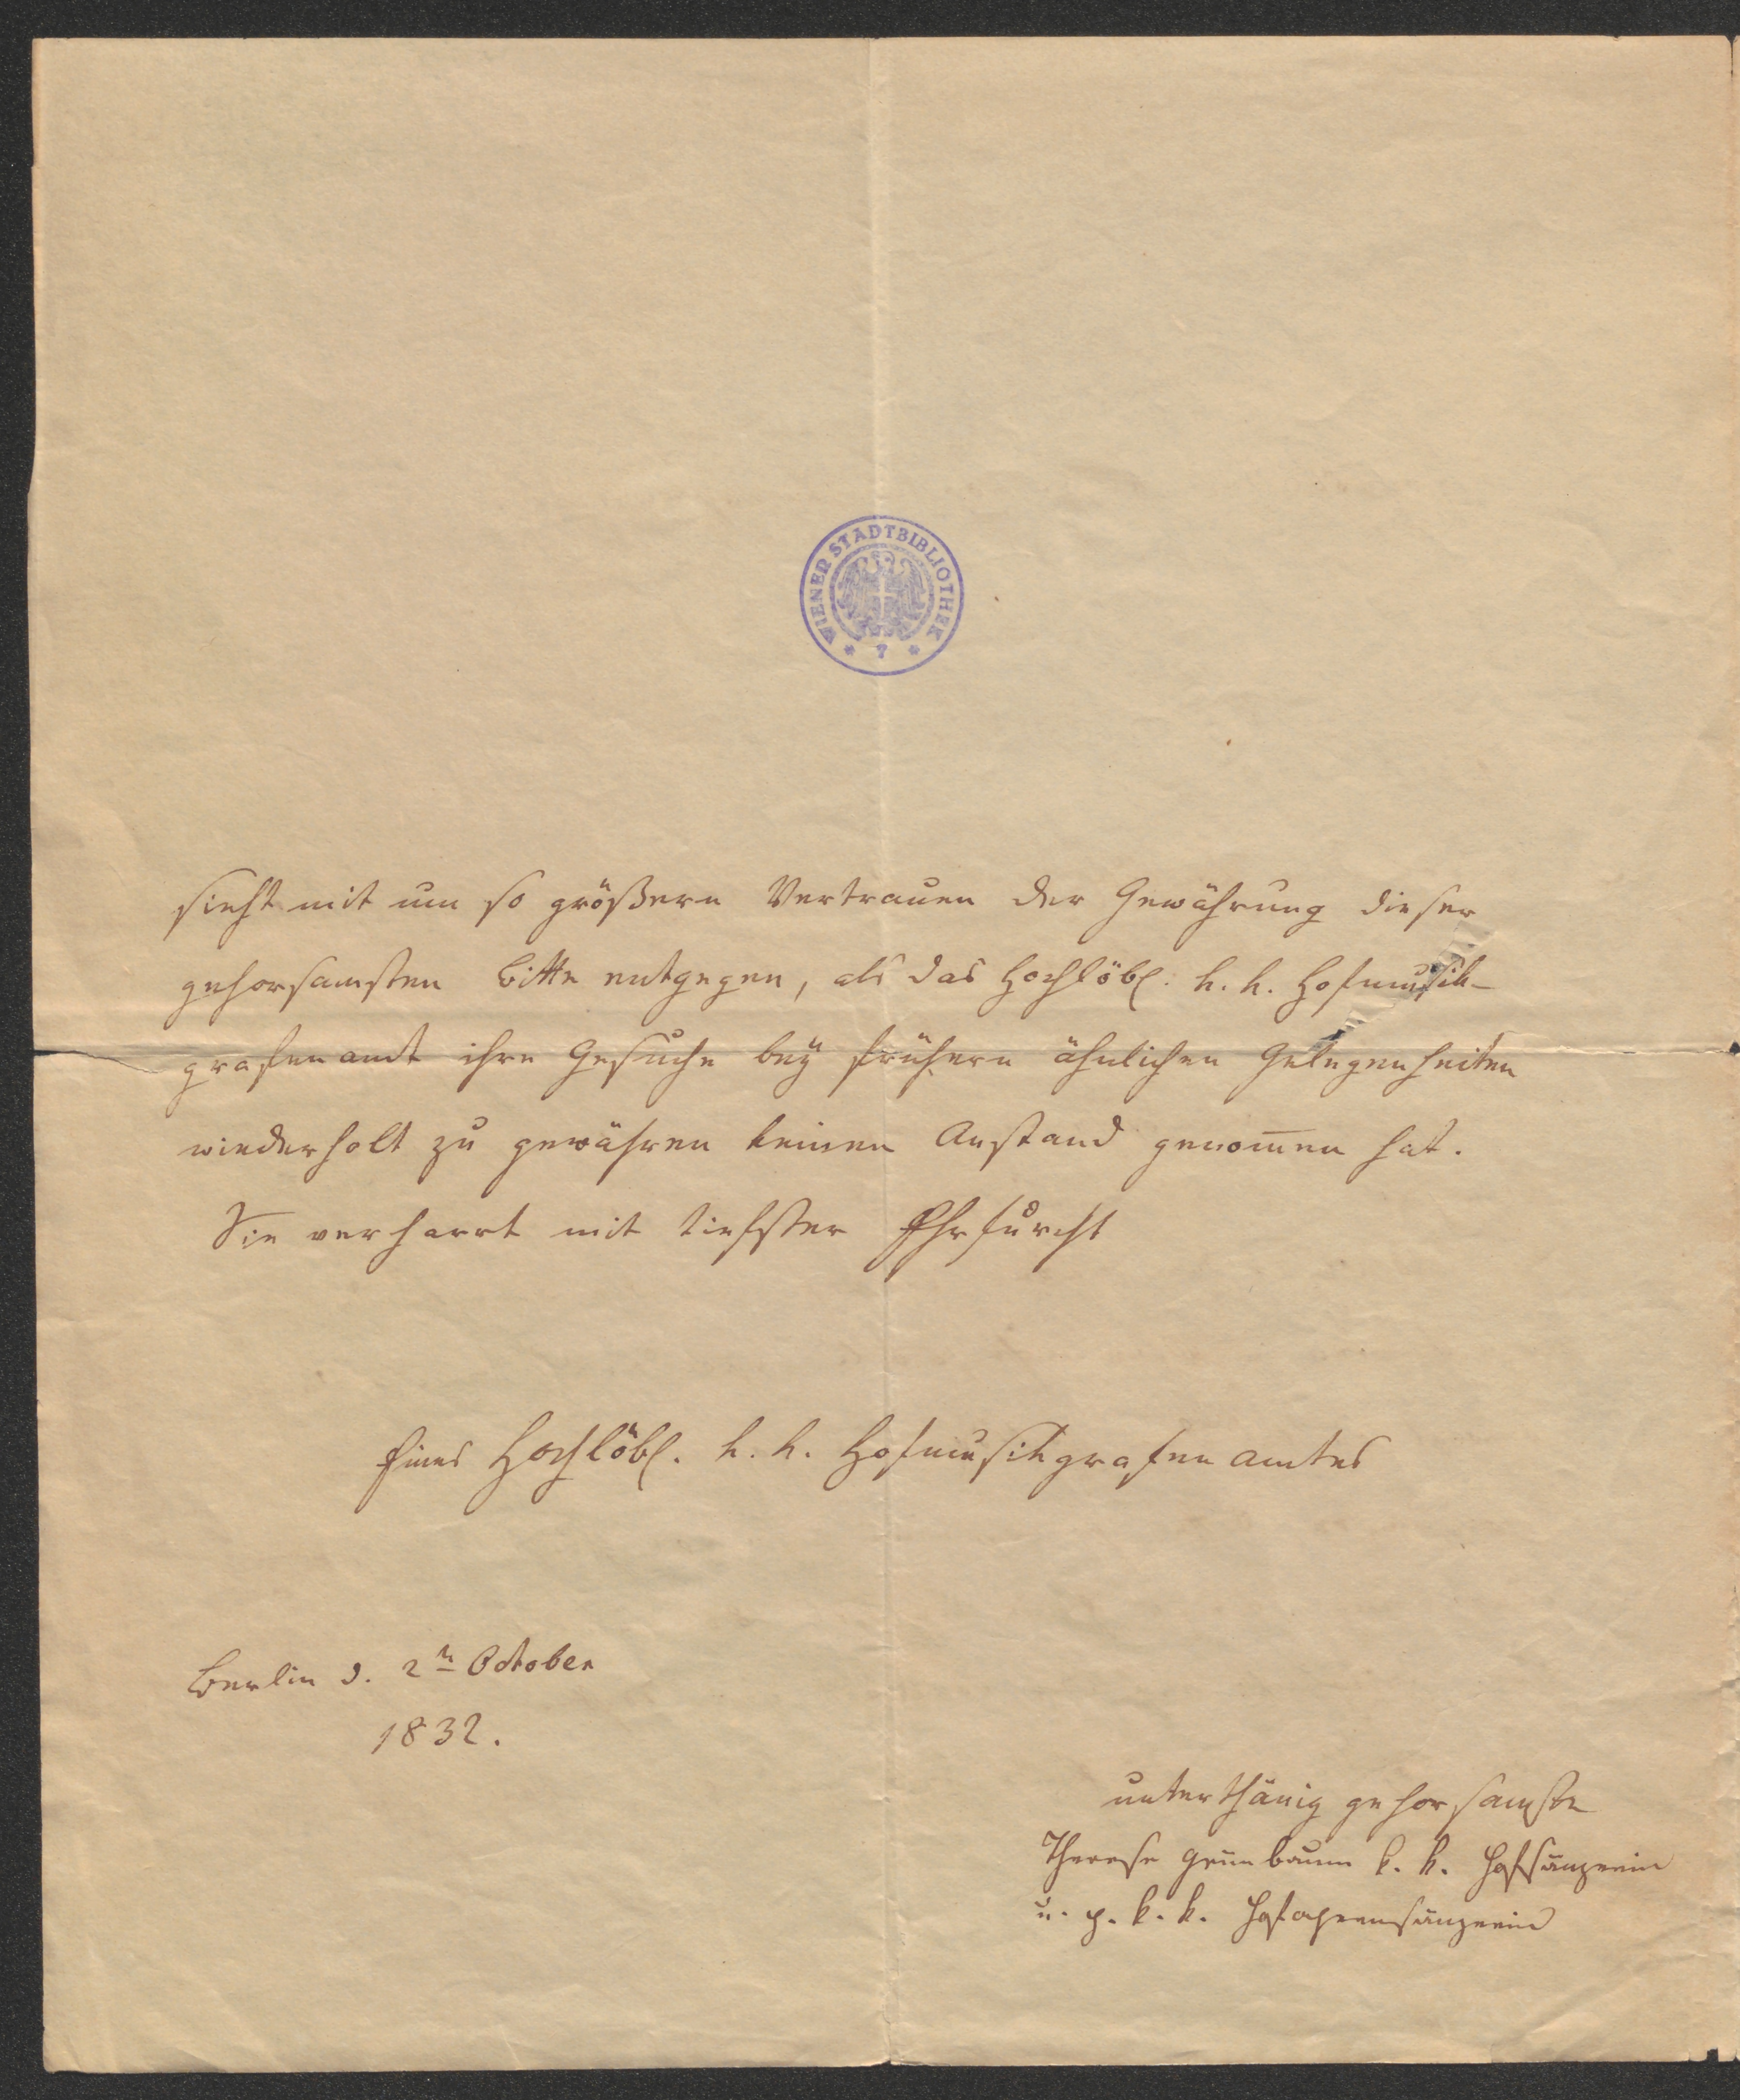 WIENER STADTBIBLIOTHEK
* 7 *
sieht mit um so größern Vertrauen der Gewährung dieser
gehorsamsten Bitte entgegen, als das Hochlöbl. k. k. Hofmusik-
grafenamt ihre Gesuche bey frühern ähnlichen Gelegenheiten
wiederholt zu gewähren keinen Anstand genom̅en hat.
Sie verharrt mit tiefster Ehrfurcht
Eines Hochlöbl. k. k. Hofmusikgrafenamtes
Berlin d. 2tn October
1832.
unterthänig gehorsamste
Therese Grünbaum k. k. Hofsängerin
u. p. k. k. Hofopernsängerin